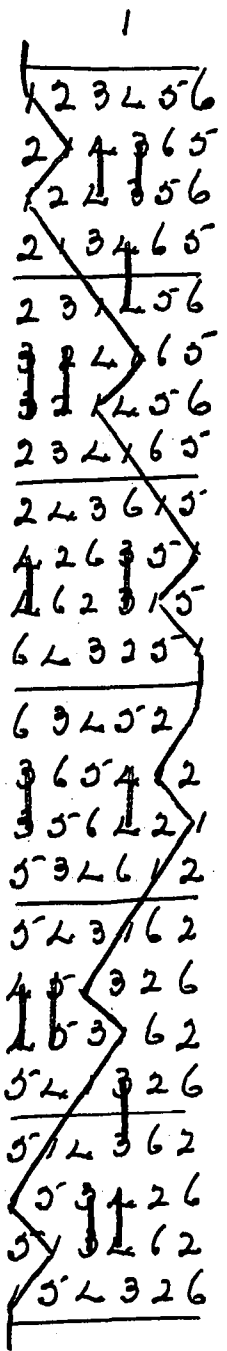 1
1 2 3 4 5 6
2 1 4 3 6 5
1 2 4 3 5 6
2 1 3 4 6 5
2 3 1 4 5 6
3 2 4 1 6 5
3 2 1 4 5 6
2 3 4 1 6 5
2 4 3 6 1 5
4 2 6 3 5 1
4 6 2 3 1 5
6 4 3 2 5 1
6 3 4 5 2 1
3 6 5 4 1 2
3 5 6 4 2 1
5 3 4 6 1 2
5 4 3 1 6 2
4 5 1 3 2 6
4 5 3 1 6 2
5 4 1 3 2 6
5 1 4 3 6 2
1 5 3 4 2 6
5 1 3 4 6 2
1 5 4 3 2 6